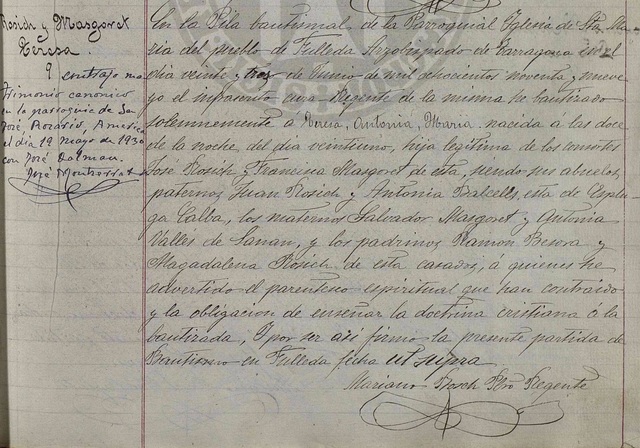 Rosich y Masgoret
Teresa.
contrajo ma-
trimonio canónico
en la parroquia de San
José, Rosario, America
el día 12 mayo de 1930
con José Dalmau.
José Montserrat
En la Pila bautismal de la Parroquial Iglesia de Sta. Ma-
ria del pueblo de Fulleda Arzobispado de Tarragona en el
dia veinte y tres de Junio de mil ochocientos noventa y nueve
yo el infrascrito cura Regente de la misma he bautizado
solemnemente á Teresa, Antonia, Maria, nacida á las doce
de la noche, del dia veintiuno, hija legitima de los consortes
José Rosich y Francisca Masgoret de esta, siendo sus abuelos
paternos Juan Rosich y Antonia Balcells, esta de Esplu-
ga Calba, los maternos Salvador Masgoret y Antonia
Vallés de Sanan, y los padrinos Ramon Besora y
Magadalena Rosich, de esta casados, á quienes he
advertido el parentesco espiritual que han contraido
y la obligacion de enseñar la doctrina cristiana á la
bautizada, I por ser asi firmo la presente partida de
Bautismo en Fulleda fecha ut supra
Mariano Bosch Pbro Regente